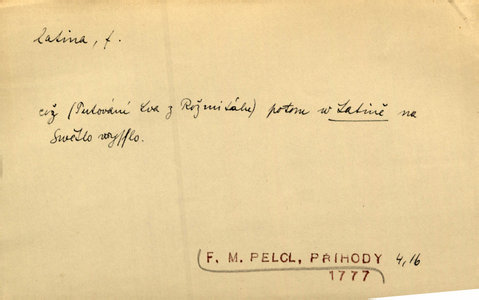 latina, f.
což (Putování Lva z Rožmitálu) potom w Latině na
Swětlo wysslo.
F. M. PELCL, PŘÍHODY 4,16
1777